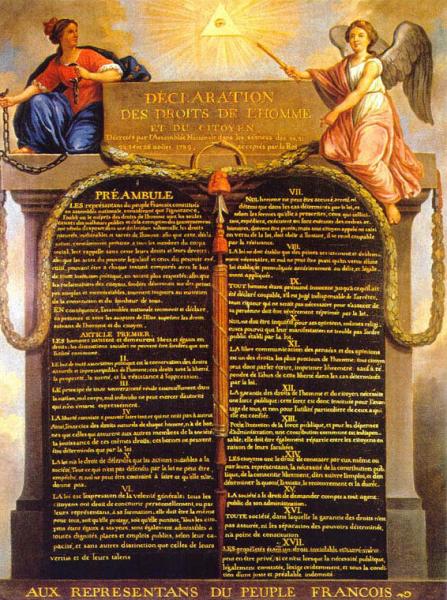 DÉCLARATION
DES DROITS DE L'HOMME
ET DU CITOYEN,
Décrétés par l'Assemblée Nationale dans les séances des 20, 21,
23, 24 et 26 août 1789, acceptés par le Roi
PRÉAMBULE
LES représentans du peuple François, constitués
en assemblée nationale, considérant que l'ignorance,
l'oubli ou le mépris des droits de l'homme sont les seules
causes des malheurs publics et de la corruption des gouvernemens
ont résolu d'exposer dans une déclaration solemnelle, les droits
naturels, inaliénables et sacrés de l'homme; afin que cette décla-
ration, constamment présente à tous les membres du corps
social, leur rappelle sans cesse leurs droits et leurs devoirs;
afin que les actes du pouvoir législatif et ceux du pouvoir exé-
cutif, pouvant être à chaque instant comparés avec le but
de toute institution politique, en soient plus respectés; afin que
les réclamations des citoyens, fondées désormais sur des princi-
pes simples et incontestables, tournent toujours au maintien
de la constitution et du bonheur de tous.
EN conséquence, l'assemblée nationale reconnoit et déclare,
en présence et sous les auspices de l'Être suprême les droits
suivans de l'homme et du citoyen.
ARTICLE PREMIER.
LES hommes naissent et demeurent libres et égaux en
droits; les distinctions sociales ne peuvent être fondées que sur
l'utilité commune.
II.
LE but de toute association politique est la conservation des droits
naturels et imprescriptibles de l'homme; ces droits sont la liberté,
la propriété, la sureté, et la résistance à l'oppression.
III.
LE principe de toute souveraineté réside essentiellement dans
la nation, nul corps, nul individu ne peut exercer d'autorité
qui n'en émane expressement.
IV.
LA liberté consiste à pouvoir faire tout ce qui ne nuit pas à autrui
Ainsi, l'exercice des droits naturels de chaque homme, n'a de bor-
nes que celles qui assurent aux autres membres de la société
la jouissance de ces mêmes droits; ces bornes ne peuvent
être déterminées que par la loi
V.
LA loi n'a le droit de défendre que les actions nuisibles à la
société. Tout ce qui n'est pas défendu par la loi ne peut être
empêché, et nul ne peut être contraint à faire ce qu'elle n'or-
donne pas.
VI.
LA loi est l'expression de la volonté générale; tous les
citoyens ont droit de concourir personnellement, ou par
leurs représentans, à sa formation; elle doit être la même
pour tous, soit qu'elle protege, soit qu'elle punisse. Tous les cito-
yens étant égaux à ses yeux, sont également admissibles à
toutes dignités, places et emplois publics, selon leur ca-
pacité, et sans autres distinction que celles de leurs
vertus et de leurs talens
VII.
NUL homme ne peut être accusé, arreté, ni
détenu que dans les cas déterminés par la loi, et
selon les formes qu'elle a prescrites, ceux qui sollici-
tent, expédient, exécutent ou font exécuter des ordres ar-
bitraires, doivent être punis; mais tout citoyen appelé ou saisi
en vertu de la loi, doit obéir à l'instant, il se rend coupable
par la résistance.
VIII.
LA loi ne doit établir que des peines strictement et évidem-
ment nécessaire, et nul ne peut être puni qu'en vertu d'une
loi établie et promulguée antérieurement au délit, et légale-
ment appliquée.
IX.
TOUT homme étant présumé innocent jusqu'à ce qu'il ait
été déclaré coupable, s'il est jugé indispensable de l'arrêter,
toute rigueur qui ne seroit pas nécessaire pour s'assurer de
sa personne doit être sévérement réprimée par la loi.
X.
NUL ne doit être inquiété pour ses opinions, mêmes religi-
euses pourvu que leur manifestation ne trouble pas l'ordre
public établi par la loi.
XI.
LA libre communication des pensées et des opinions
est un des droits les plus précieux de l'homme; tout citoyen
peut donc parler, écrire, imprimer librement; sauf à ré-
pondre de l'abus de cette liberté dans les cas déterminés
par la loi.
XII.
LA garantie des droits de l'homme et du citoyen nécessite
une force publique; cette force est donc instituée pour l'avan-
tage de tous, et non pour l'utilité particuliere de ceux à qui
elle est confiée.
XIII.
POUR l'entretien de la force publique, et pour les dépenses
d'administration, une contribution commune est indispen-
sable; elle doit être également répartie entre les citoyens en
raison de leurs facultés.
XIV.
LES citoyens ont le droit de constater par eux même ou
par leurs représentans, la nécessité de la contribution pub-
lique, de la consentir librement, d'en suivre l'emploi, et d'en
déterminer la quotité, l'assiette, le recouvrement et la durée.
XV.
LA société a le droit de demander compte à tout agent
public de son administration.
XVI.
TOUTE société, dans laquelle la garantie des droits n'est
pas assurée, ni les séparation des pouvoirs déterminée,
n'a point de constitution.
XVII.
LES propriétés étant un droit inviolable et sacré, nul ne
peut en être privé, si ce n'est lorsque la nécessité publique,
légalement constatée, l'exige évidemment, et sous la condition
d'une juste et préalable indemnité
AUX REPRESENTANS DU PEUPLE FRANCOIS